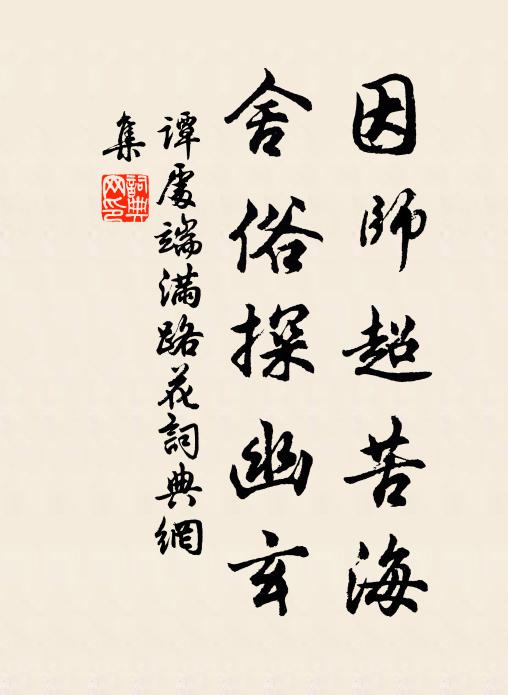 因師超苦海
舍俗探幽玄
譚處端滿路花詞典網
集
詞典網印